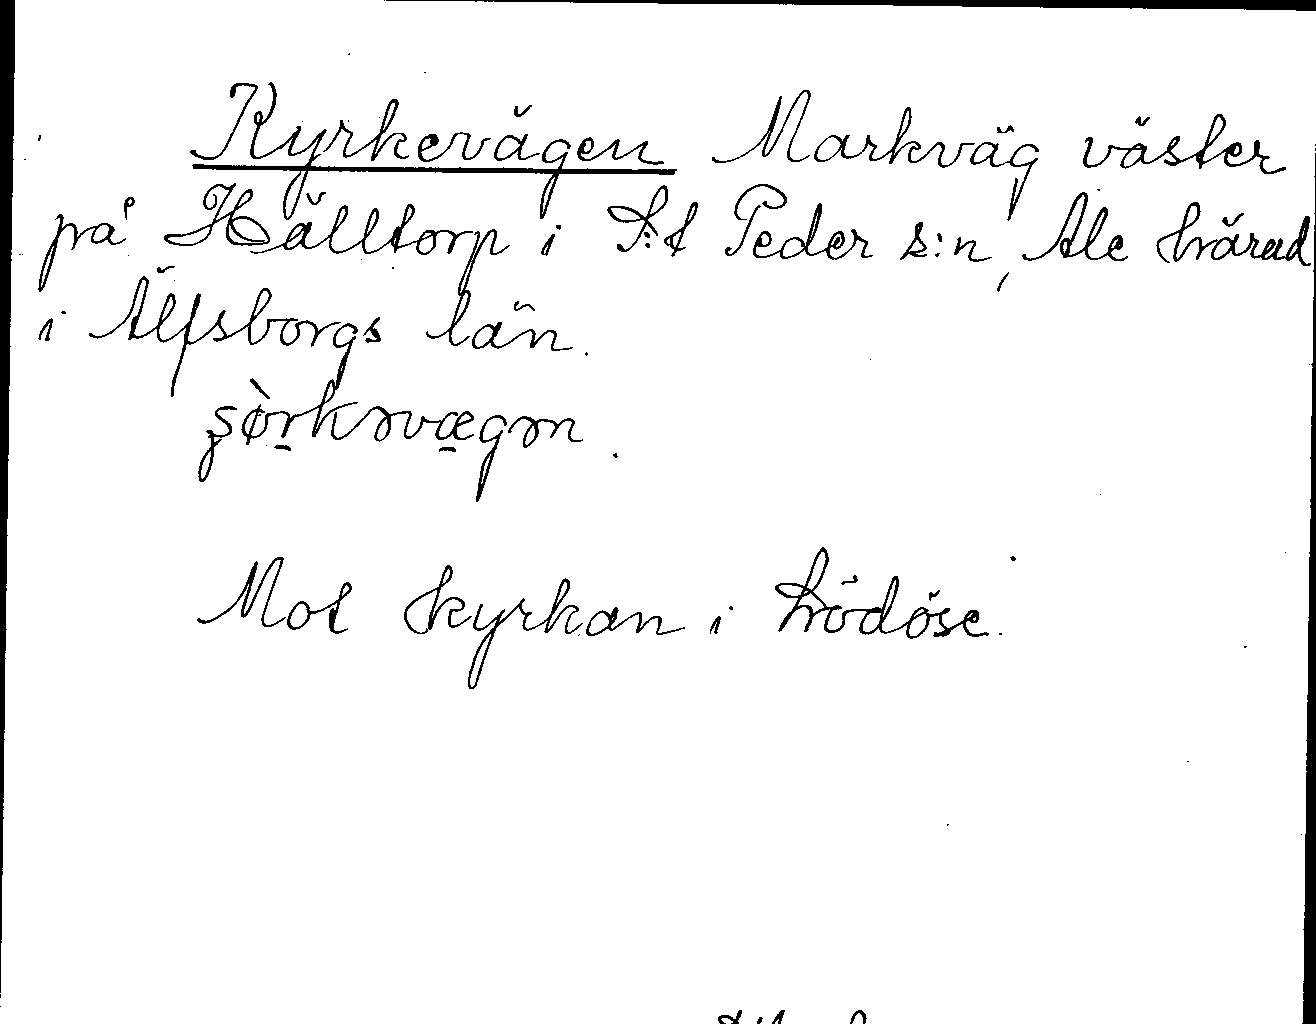 Kyrkevägen Markväg väster
på Hälltorp i S:t Peder s:n, Ale härad
i Älfsborgs län.
Mot kyrkan i Lödöse.